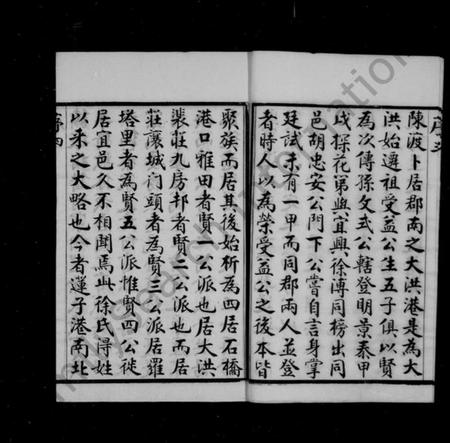 序三
陳渡卜居郡南之大洪港是為大
洪始遷祖受益公生五子俱以賢
為次傳孫文式公轄登明景泰甲
戌探花第與宜興徐溥同榜出同
邑胡忠安公門下公嘗自言身掌
廷試未有一甲而同郡兩人並登
者時人以為榮受益公之後本皆
聚族而居其後始析為四居石橋
港口雅田者賢一公派也居大洪
裴莊九房邨者賢二公派也而居
莊讓城門頭者為賢三公派居羅
塔里者為賢五公派惟賢四公徙
居宜邑久不相聞焉此徐氏得姓
以來之大略也今者蓮子港南北
序四